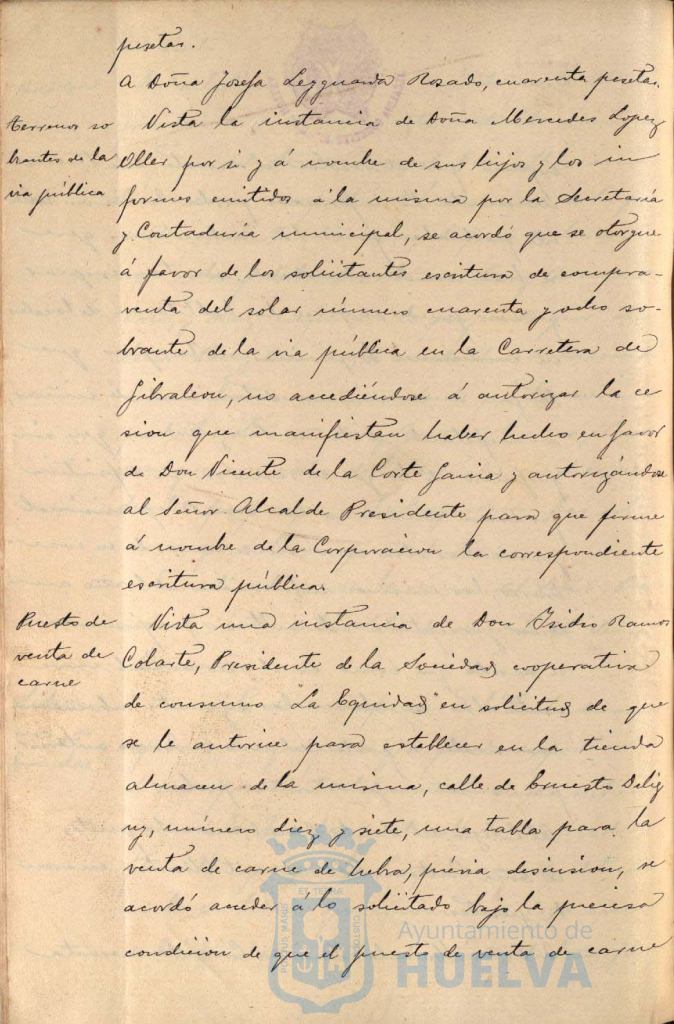 pesetas.
A Doña Josefa Legguarda Rosado, cuarenta pesetas.
terrenos so
brantes de la
via pública
Vista la instancia de Doña Mercedes Lopez
Oller por si y á nombre de sus hijos y los in
formes emitidos á la misma por la Secretaría
y Contaduría municipal, se acordó que se otorgue
á favor de los solicitantes escritura de compra-
venta del solar número cuarenta y ocho so-
brante de la via pública en la Carretera de
Gibraleon, no accediéndose á autorizar la ce
sion que manifiestan haber hecho en favor
de Don Vicente de la Corte Garcia y autorizándose
al Señor Alcalde Presidente para que firme
á nombre de la Corporacion la correspondiente
escritura pública.
Puesto de
venta de
carne
Vista una instancia de Don Isidro Ramos
Colarte, Presidente de la Sociedad cooperativa
de consumo "La Equidad" en solicitud de que
se le autorice para establecer en la tienda
almacen de la misma, calle de Ernesto Delig
ny, número diez y siete, una tabla para la
venta de carne de hebra, prévia discusion, se
acordó acceder á lo solicitado bajo la precisa
condicion de que el puesto de venta de carne
Ayuntamiento de
HUELVA